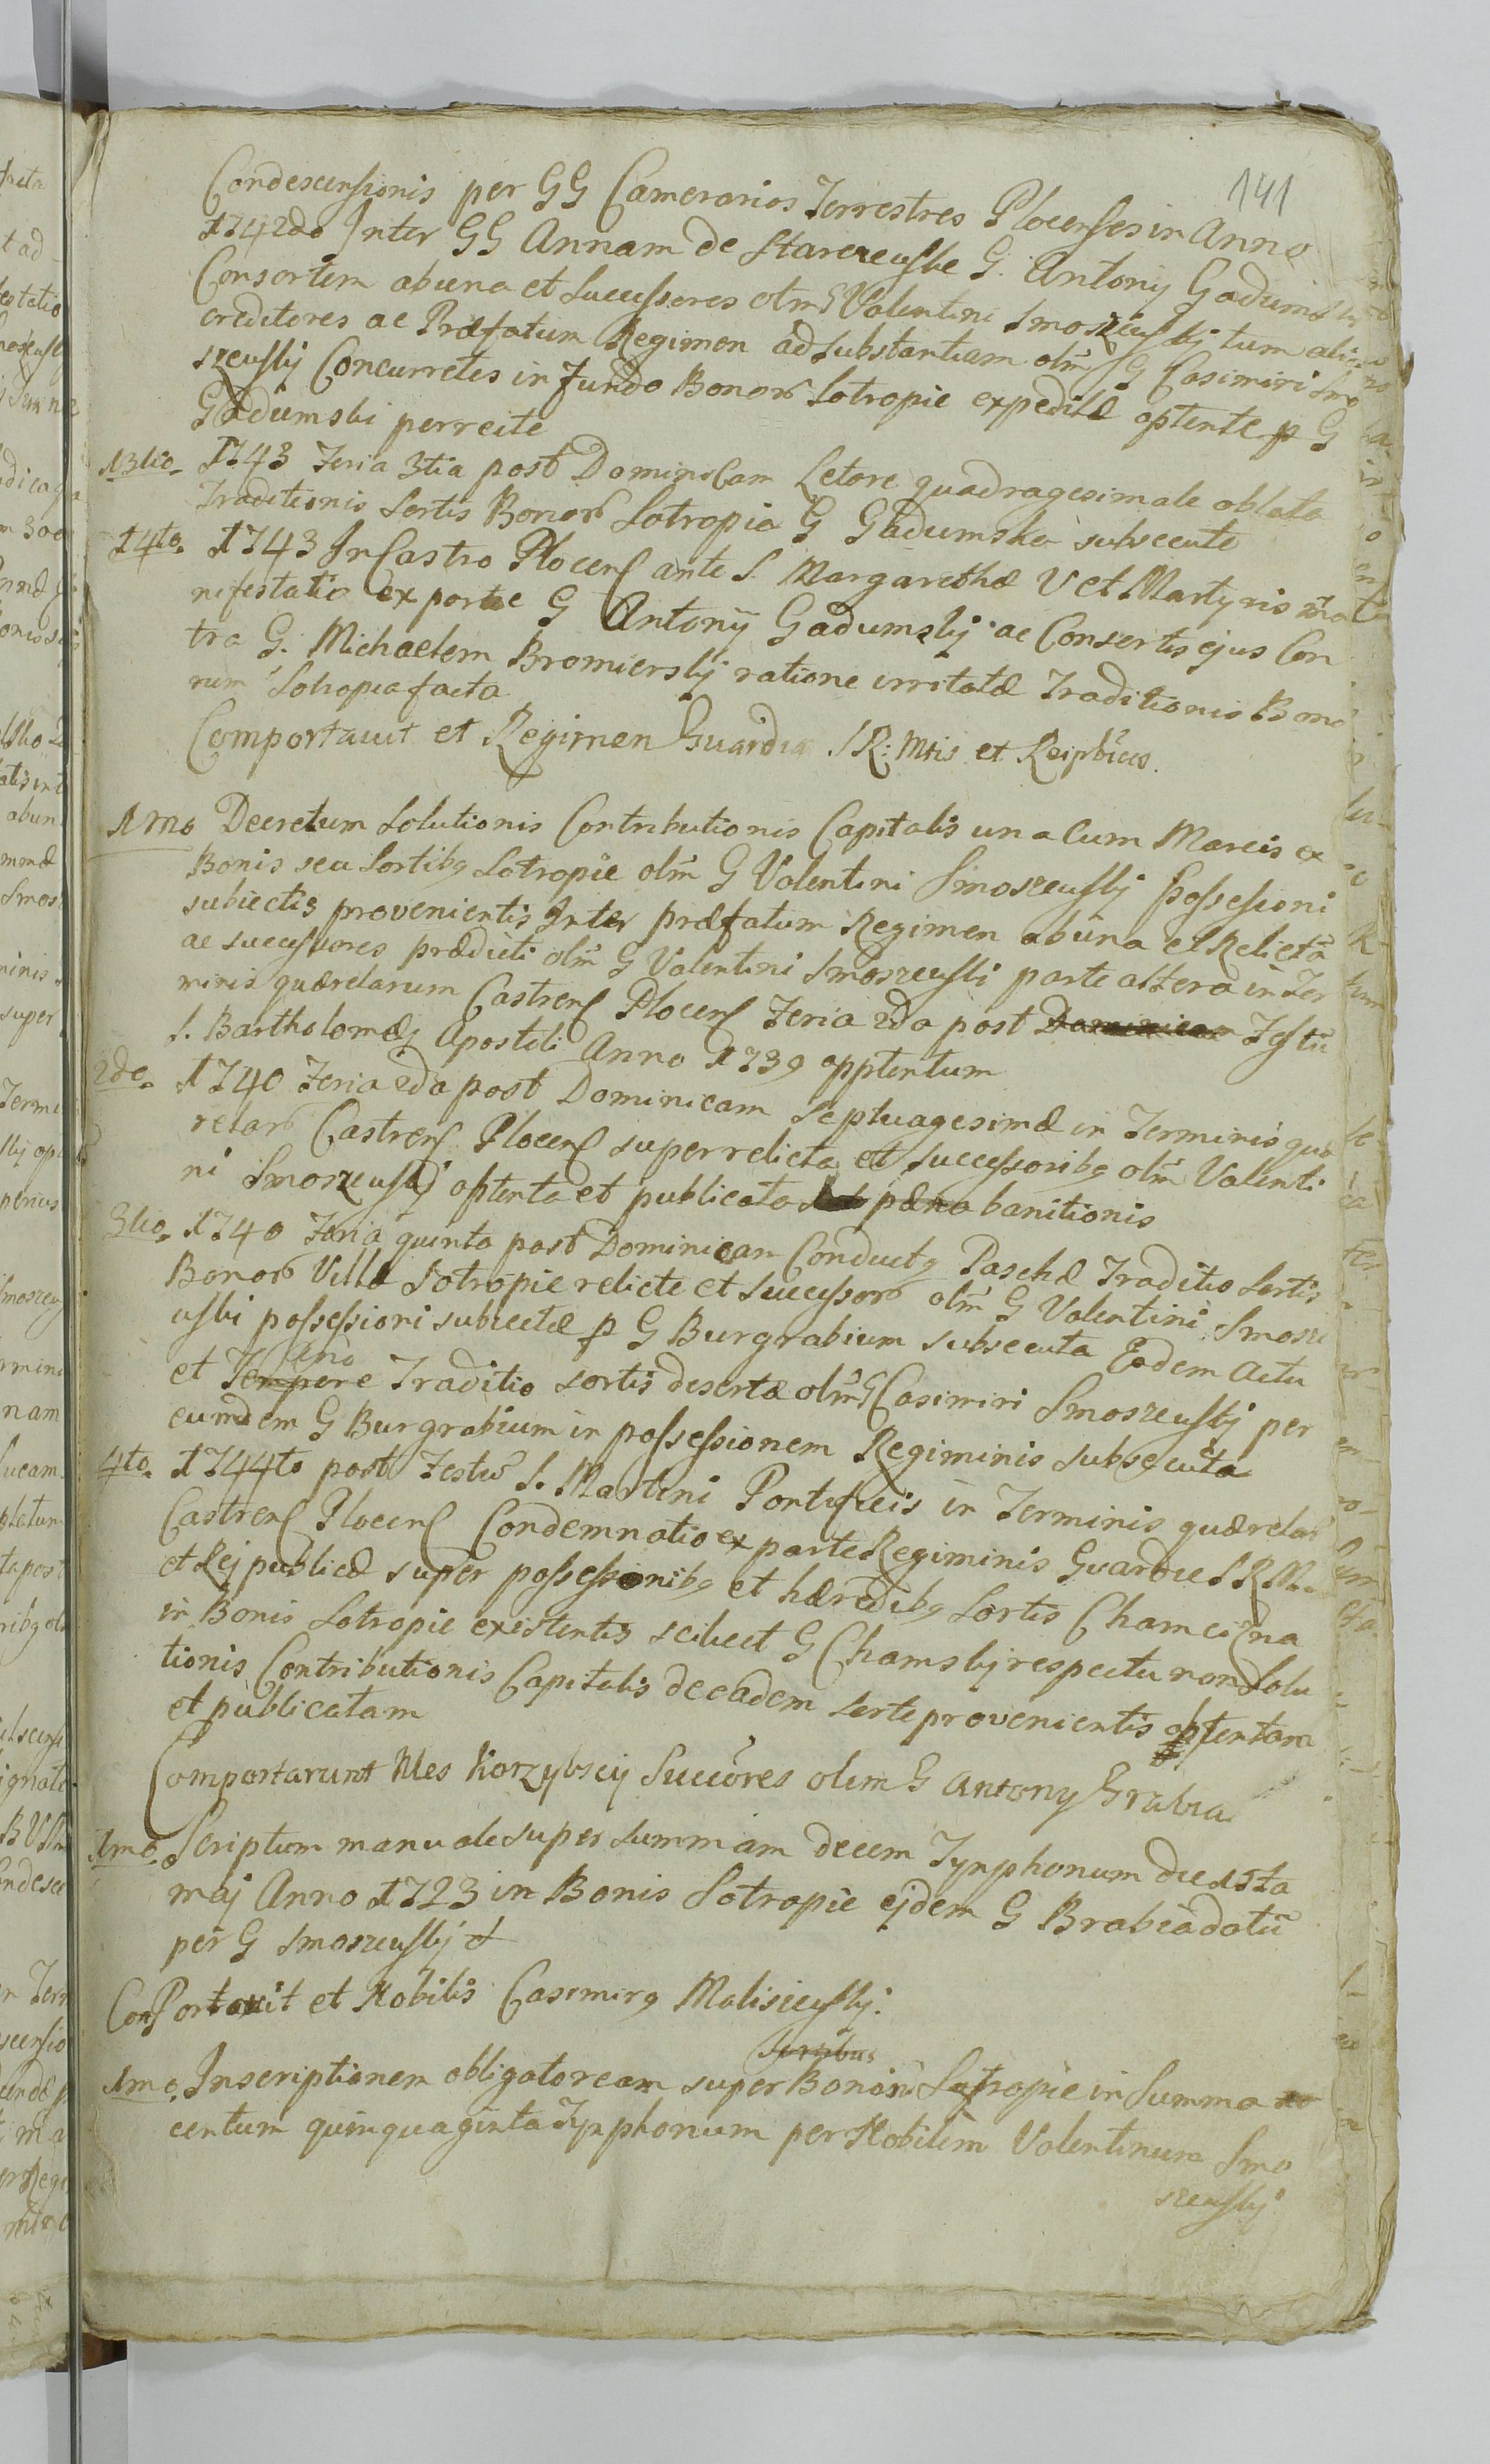 141
Condescensionis per GG Camerarios Terrestres Plocenses in Anno
1742do Inter GG Annam de Starczewskie G. Antonij Gadumskij
Consortem ab una et Successores olm G Valentini Smoszewskij tum alios
creditores ac Præfatum Regimen ad substantiam olm G Casimiri Smo
szewskij Concurretes in fundo Bonor Sotropie expeditæ optente p G
Gadumski perrecte
13tio. 1743 Feria 3tia post Dominicam Letare quadragesimale oblata
Traditionis Sortis Bonor Sotropia G Gadumska subsecute
14to. 1743 In Castro Plocens ante S. Margarethæ V et Martyris Ma
nifestatio ex parte G Antonij Gadumskij ac Consortis ejus Con
tra G. Michaelem Bromierskij ratione irritatæ Traditionis Bono
rum Sotropia facta
Comportavit et Regimen Guardia S R: Mtis et Reipblicæ.
1mo Decretum Solutionis Contributionis Capitalis una Cum Marcis ex
Bonis seu Sortibq Sotropie olm G Valentini Smoszewskij Possessioni
subiectis provenientis Inter præfatum Regimen ab una et Relictã
ac successores prædicti olm G Valentini Smoszewski parte altera in Ter
minis quærelarum Castrens Plocens Feria 2da post Dominicam Festũ
S. Bartholomæj Apostoli Anno 1739 opptentum
2do. 1740 Feria 2da post Dominicam Septuagesimæ in Terminis quæ
relar Castrens Plocens super relicta et Successoribq olm Valenti
ni Smoszewskij optenta et publicata pæna banitionis
3tio. 1740 Feria quinta post Dominicam Conductq Paschæ Traditio Sortis
Bonor Villæ Sotropie relicte et Successor olm G Valentini Smosze
wski possessioni subiectæ p G Burgrabium subsecuta Eodem Actu
et Tempore Traditio sortis desertæ olm G Casimiri Smoszewskij per
eumdem G Burgrabium in possessionem Regiminis subsecuta
4to. 1744to post Festum S. Martini Pontificis in Terminis quærelar
Castrens Plocens Condemnatio ex parte Regiminis Gvardie S R M
et Rej publicæ super possessionibq et hæredibq Sortis Chamcizna
in Bonis Sotropie existentis scilicet G Chamskij respectu non Solu
tionis Contributionis Capitalis de eadem sorte provenientis obtentam
et publicatam
Comportarunt Nles Korzybscij Succores olim G Antony Grabia
1mo. Scriptum manuale super summam decem Tynphonum die 15ta
maj Anno 1723 in Bonis Sotropie ejdem G Brabia datũ
per G Smoszewskij &
Comportavit et Nobilis Casimirq Malisiewskj.
Sortibus
1mo. Inscriptionem obligatoream super Bonor Sotropie in Summa
centum quinquaginta Tynphonum per Nobilem Valentinum Smo
szewskij